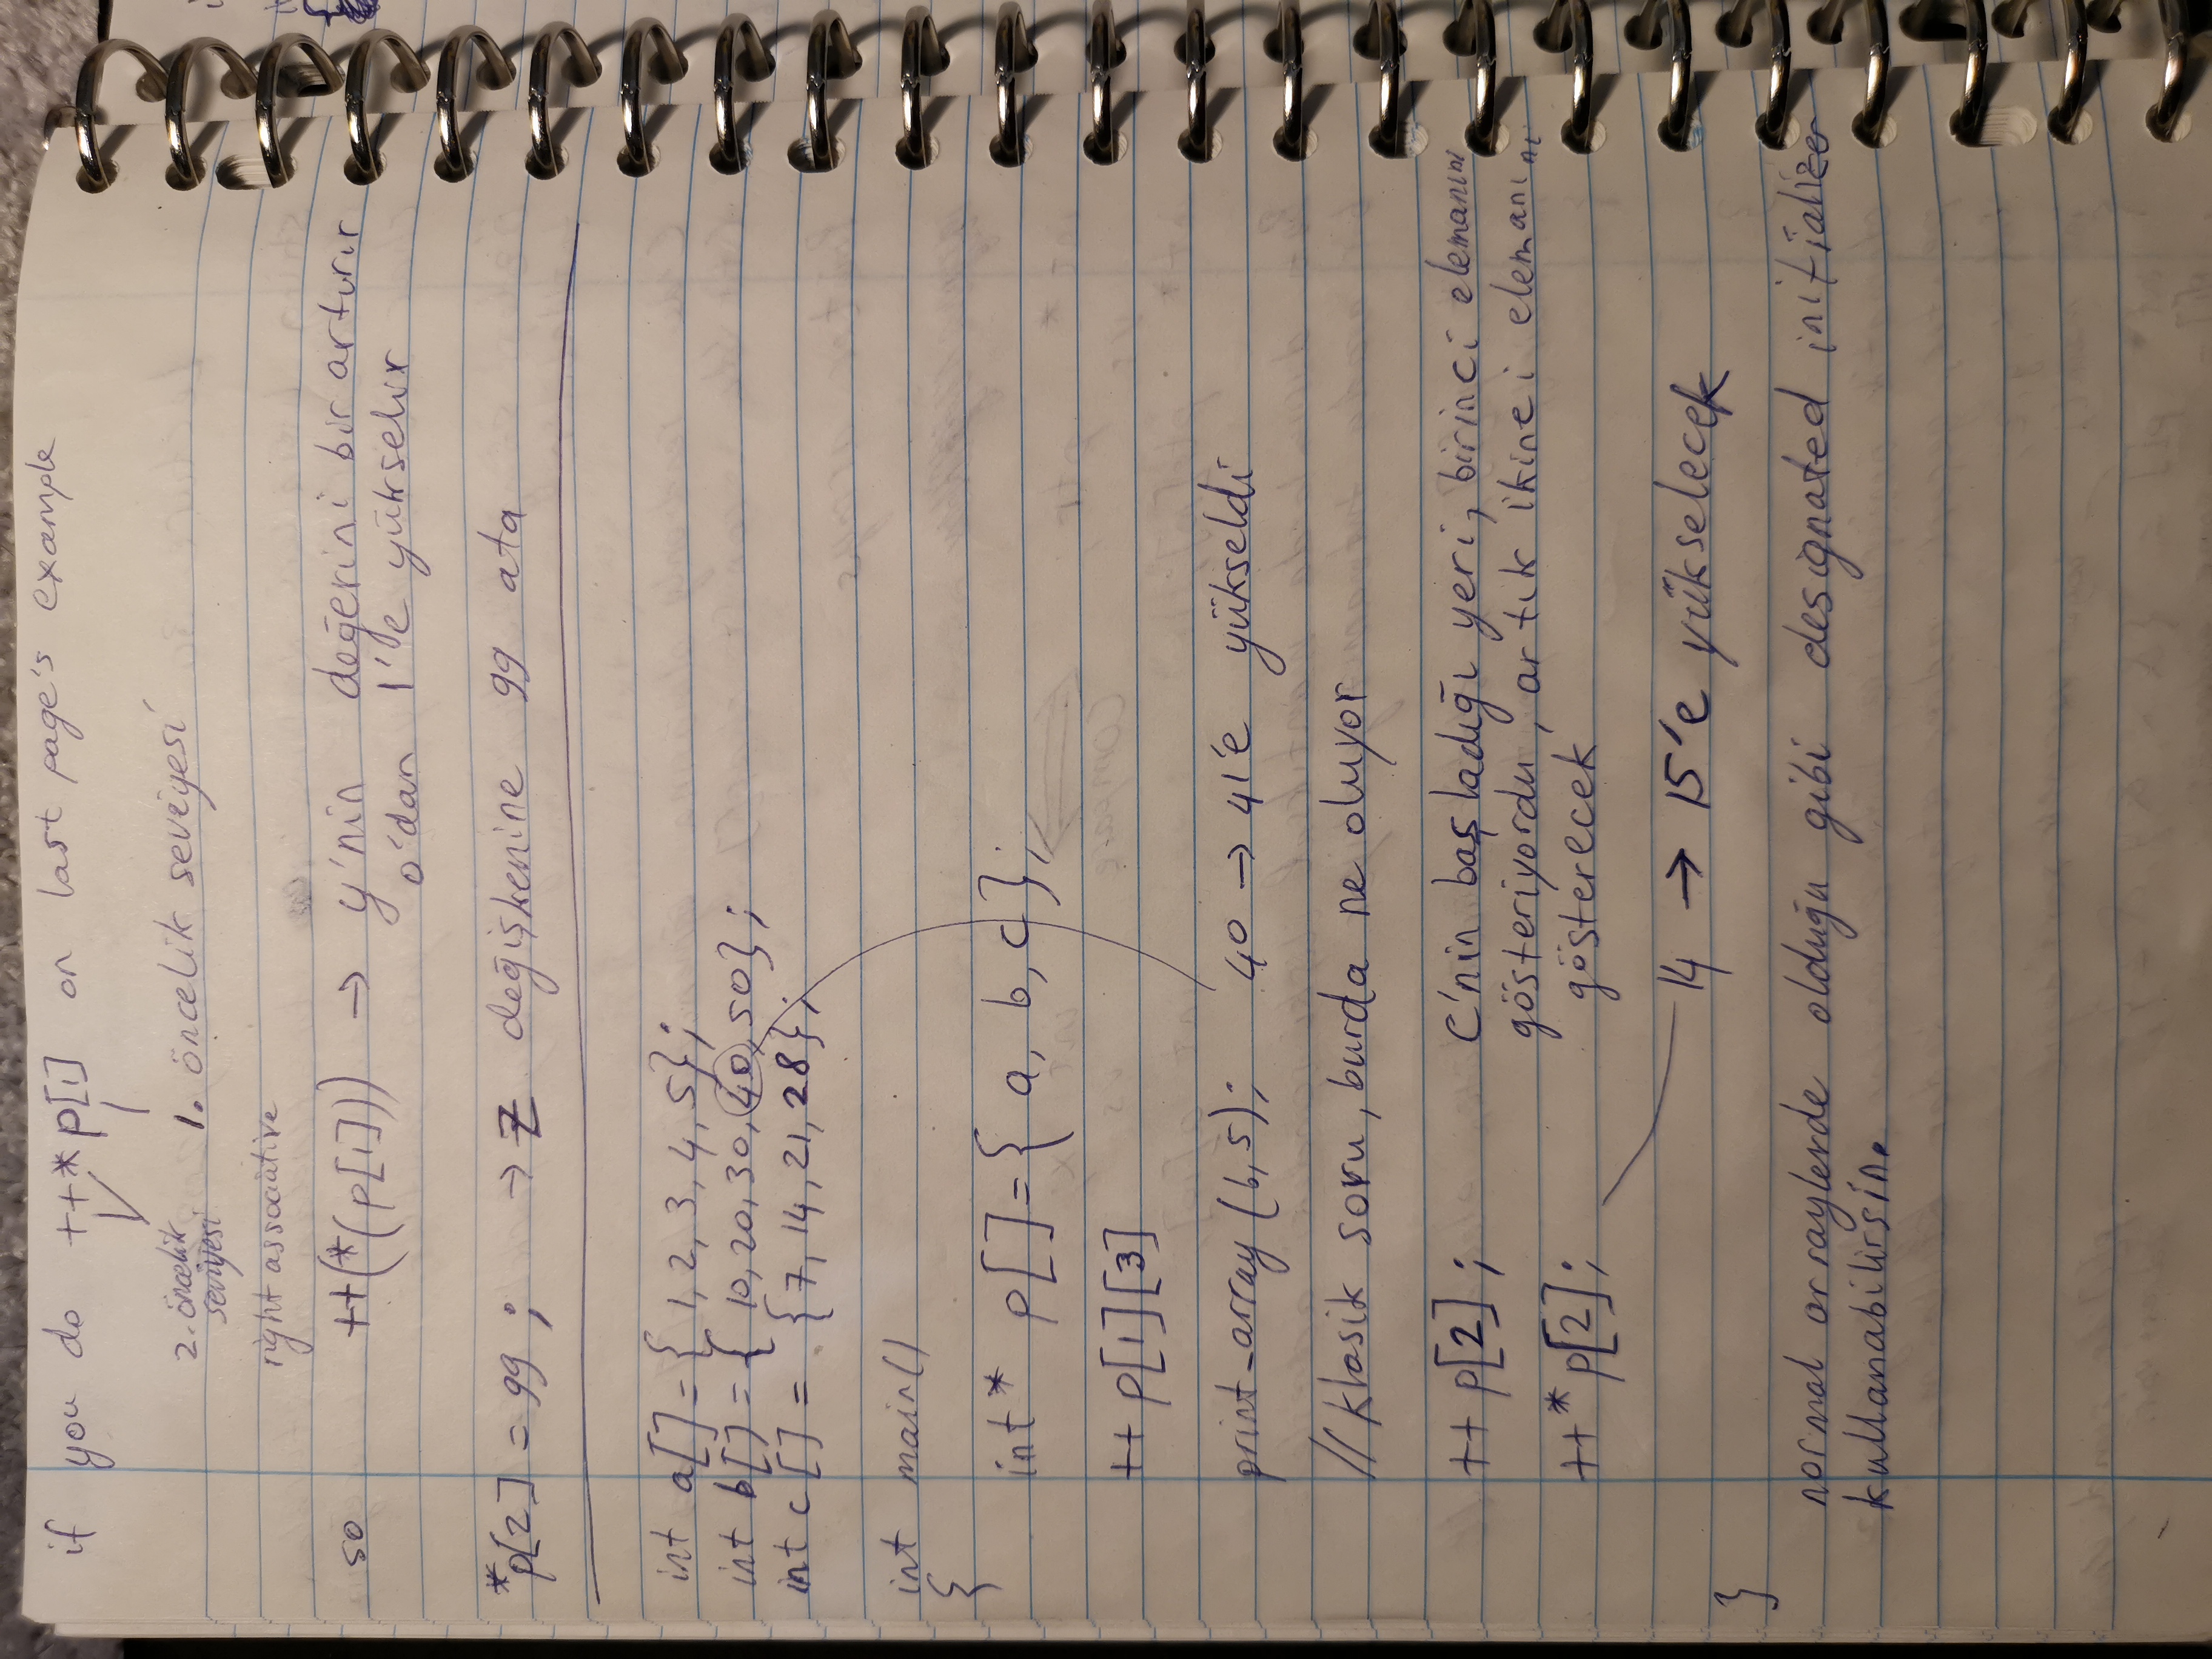 if you do ++*p[1] on last page's example
2. öncelik seviyesi 1. öncelik seviyesi
right associative
so ++(*(p[1])) → y'nin değerini bir artırır
0'dan 1'e yükselir
*p[2] = 99; → z değişkenine 99 ata
int a[] = { 1, 2, 3, 4, 5};
int b[] = { 10, 20, 30, 40, 50};
int c[] = {7, 14, 21, 28};
int main()
{
int* p[] = { a, b, c};
++ p[1][3]
print_array (b,5); 40 → 41'e yükseldi
// klasik soru, burda ne oluyor
++ p[2]; C'nin başladığı yeri, birinci elemanını
gösteriyordu, artık ikinci elemanını
++* p[2]; gösterecek
14 → 15'e yükselecek
}
normal arraylerde olduğu gibi designated initializer
kullanabilirsin.